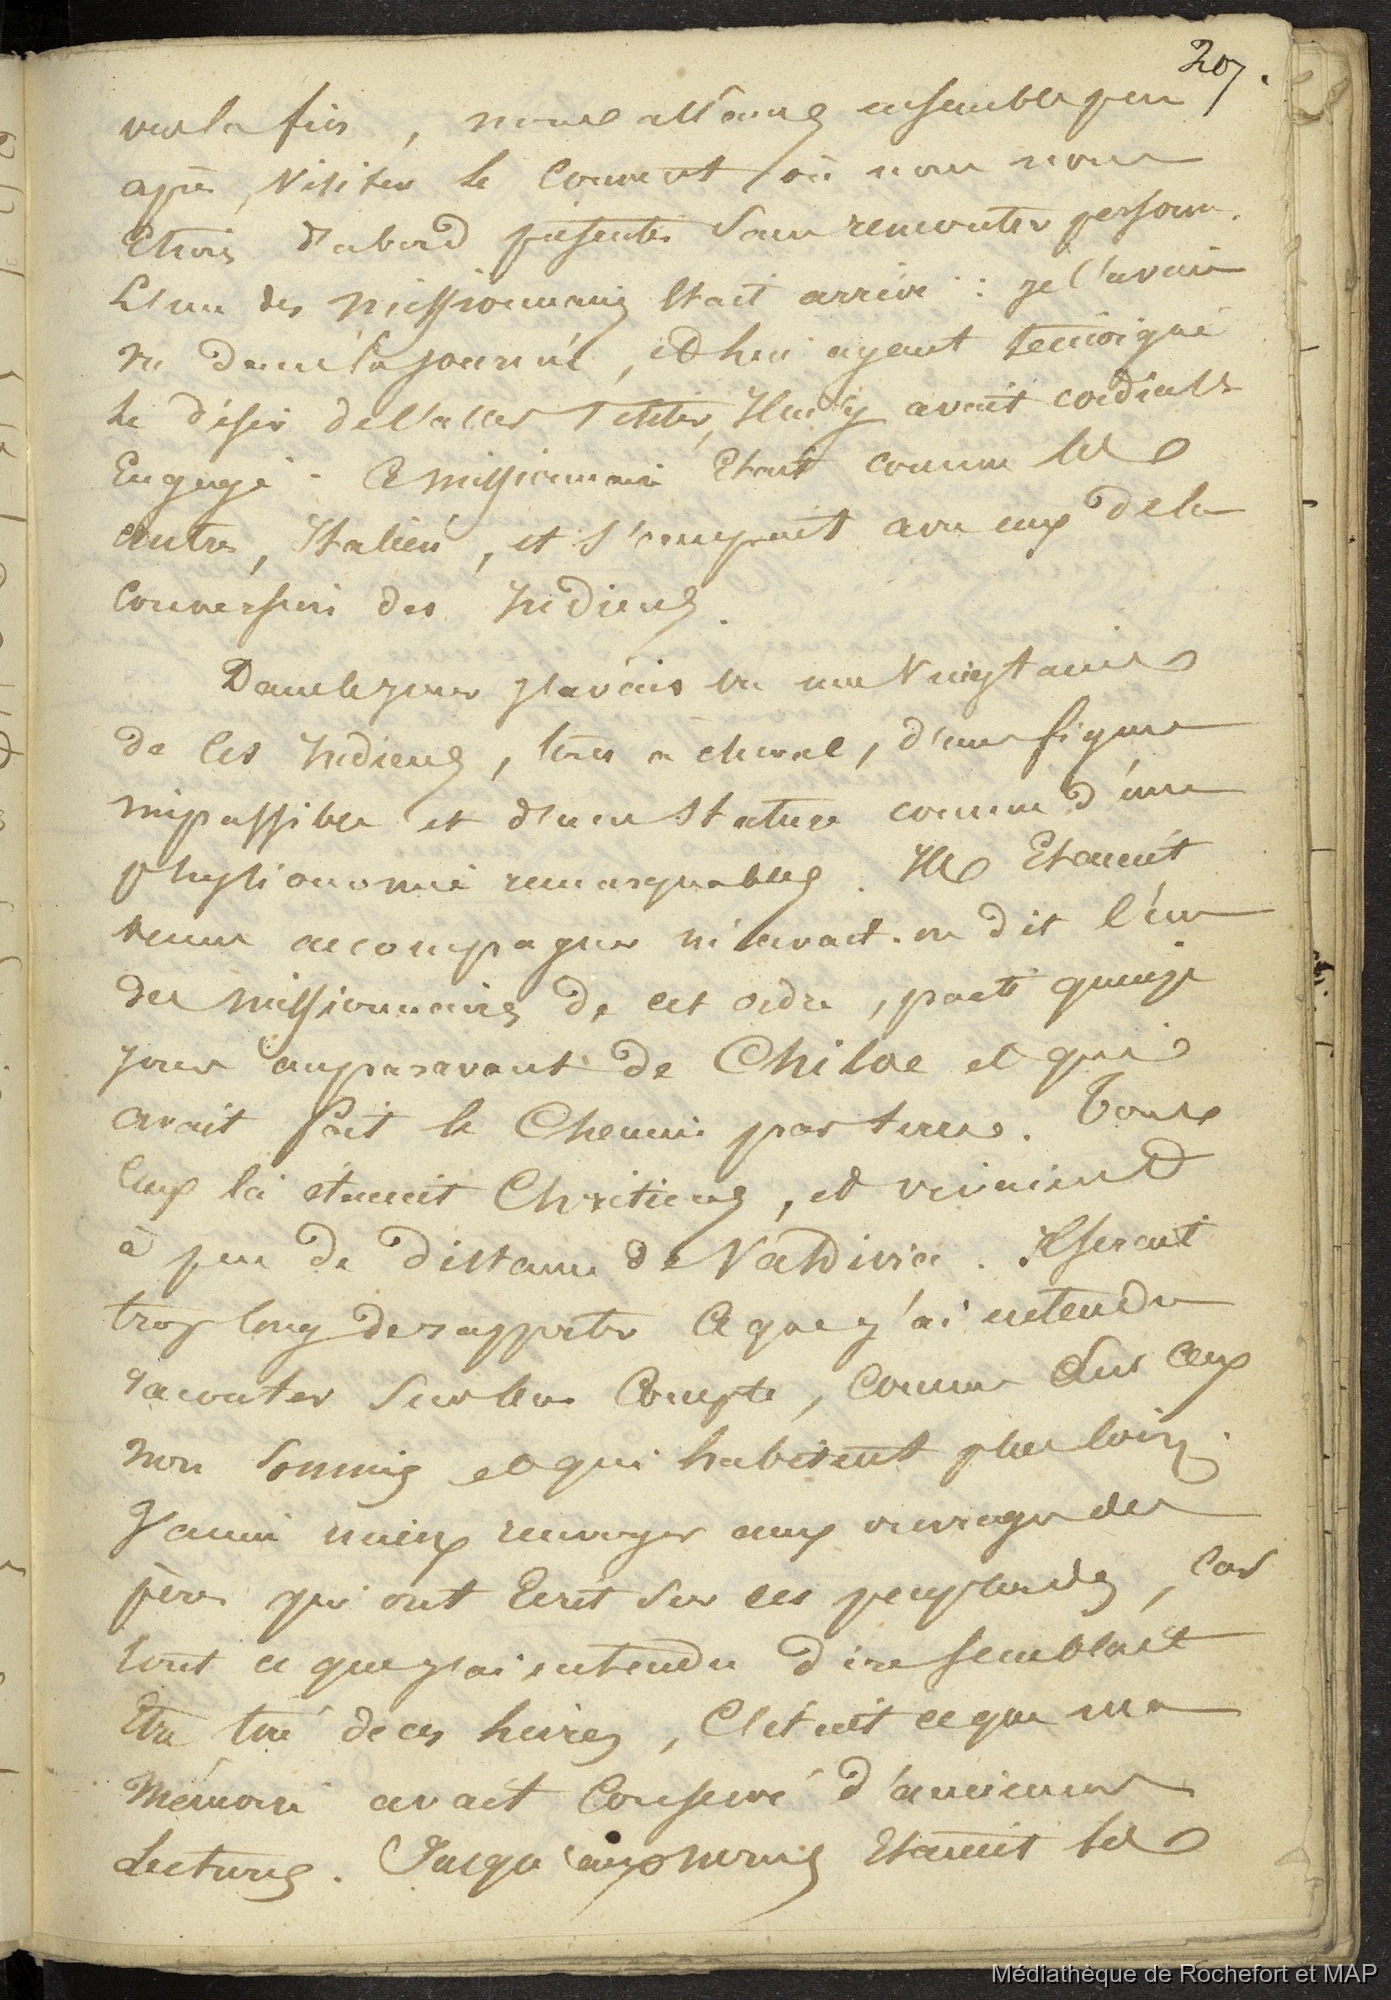 207.
vers la fin, nous allames ensemble peu
après, visiter le Couvent où nous nous
Etions d'abord présentés Sans rencontrer personne.
L'un des missionnaires Etait arrivé : je l'avais
vu dans la journée, et lui ayant temoigné
le désir de l'aller visiter, Il m'y avait cordialt
Engagé. Ce missionnaire Etait comme les
autres, Italien, et s'occupait avec eux de la
Conversion des Indiens.
Dans le jour j'avais vu une Vingtaine
de ces Indiens, tous à cheval, d'une figure
impassible et d'une Stature comme d'une
physionomie remarquables. Ils Etaient
venus accompagner m'avait-on dit l'un
des missionnaires de cet ordre, parti quinze
jours auparavant de Chiloe et qui
avait fait le Chemin par terre. Tous
Ceux là étaient Chrétiens, et vivaient
à peu de distance de Valdivia. Il serait
trop long de rapporter Ce que j'ai entendu
raconter Sur leur Compte, Comme Sur Ceux
non Soumis et qui habitent plus loin.
J'aime mieux renvoyer aux ouvrages des
pères qui ont Ecrit Sur ces peuplades, Car
tout ce que j'ai entendu dire semblait
Etre tiré de ces livres, C'était ce que ma
Mémoire avait Conservé d'anciennes
Lectures. Jusqu'aux noms Etaient les
Médiathèque de Rochefort et MAP